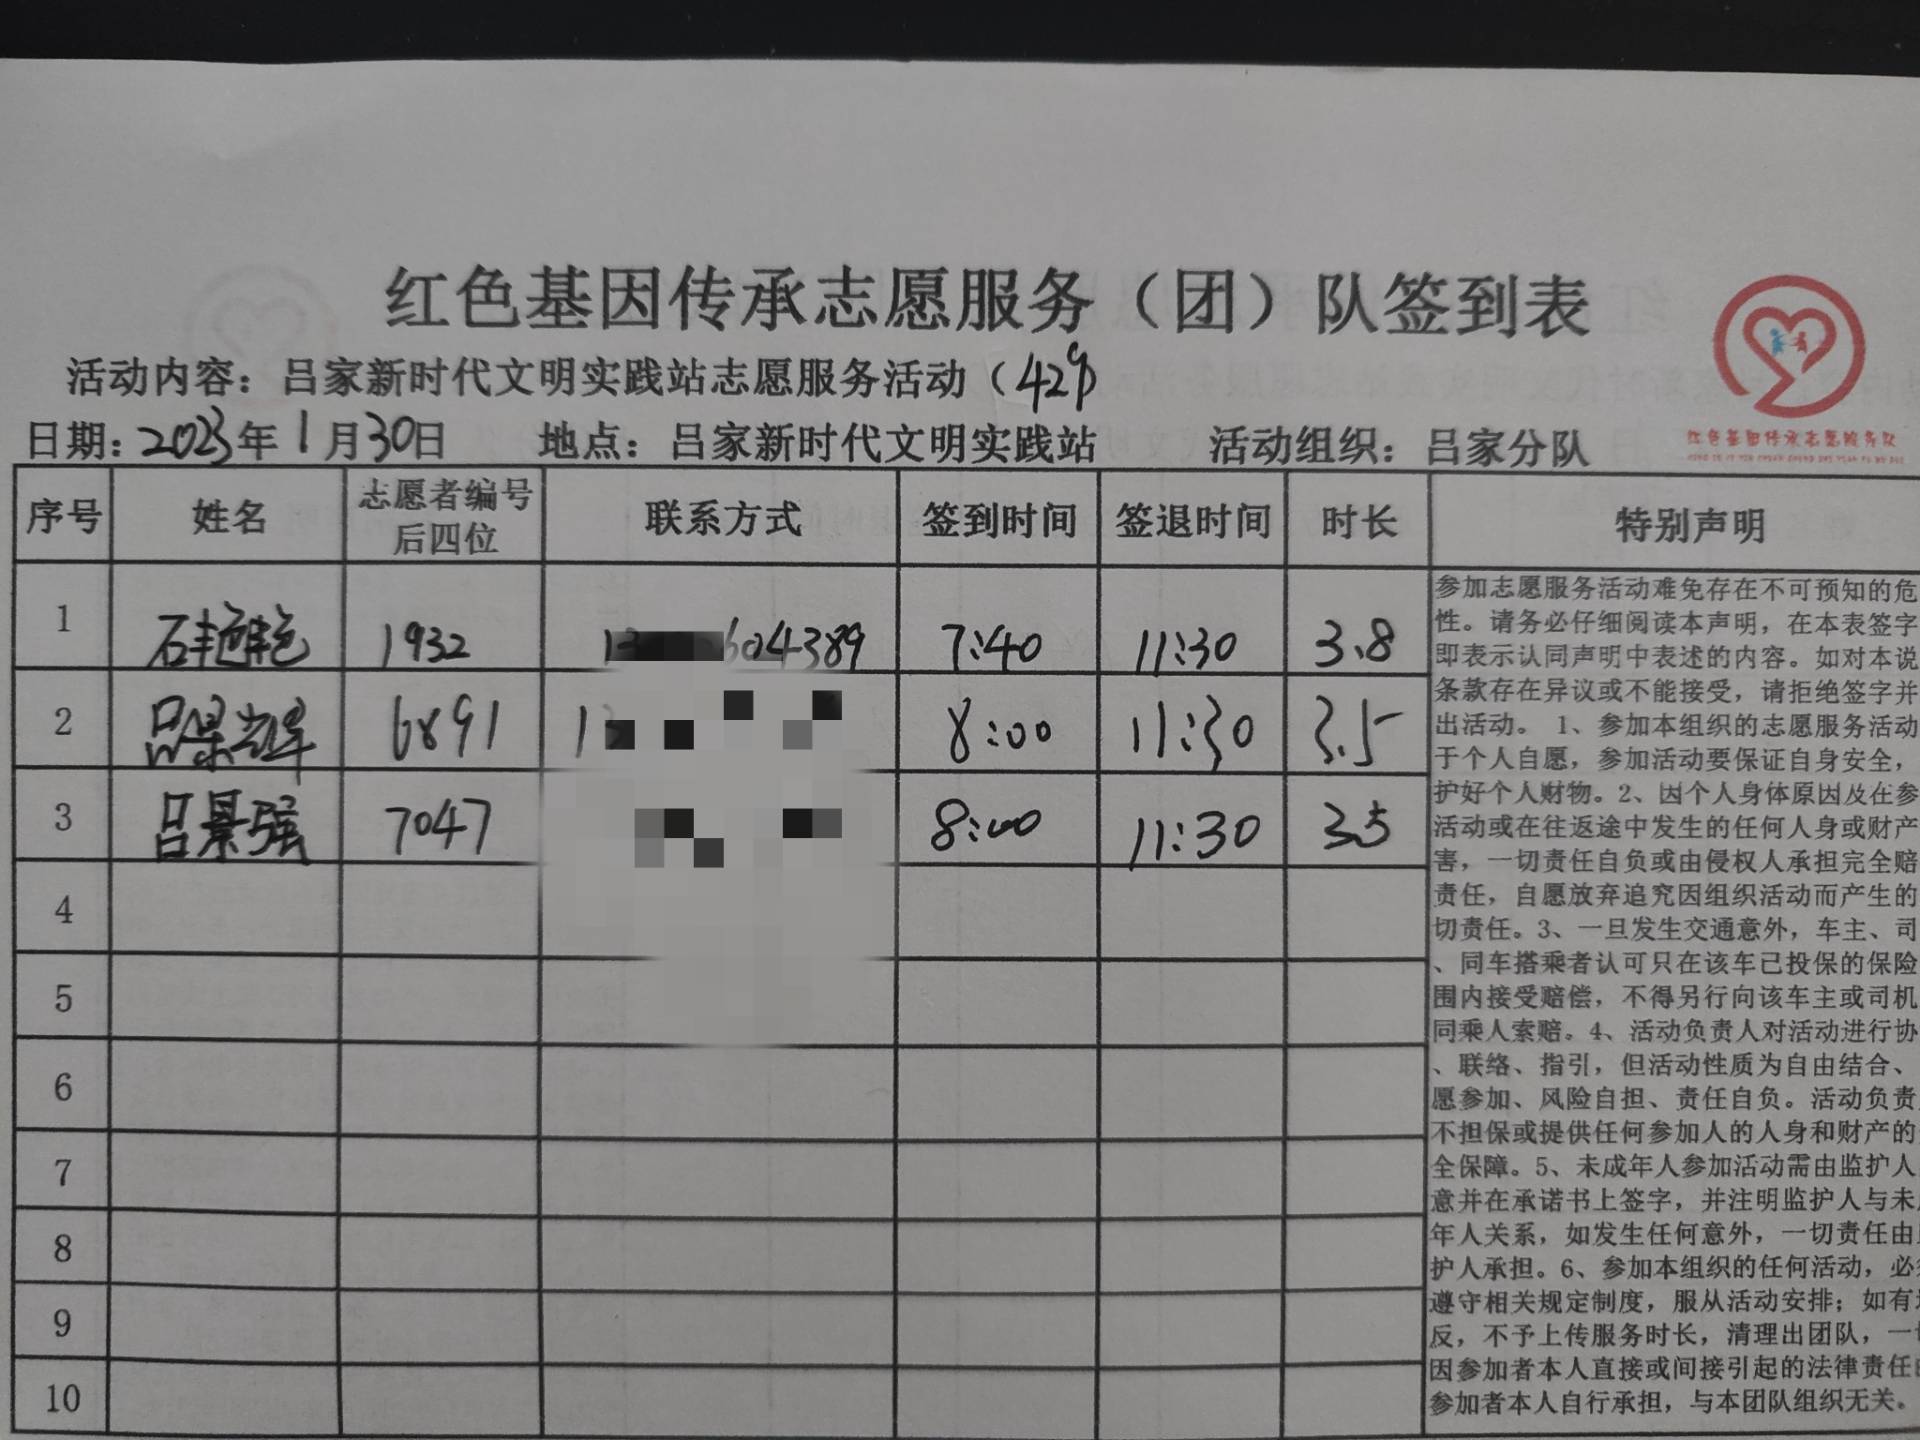 红色基因传承志愿服务（团）队签到表
活动内容：吕家新时代文明实践站志愿服务活动（429）
日期：2023年1月30日 地点：吕家新时代文明实践站 活动组织：吕家分队
红色基因传承志愿服务队
序号 姓名 志愿者编号后四位 联系方式 签到时间 签退时间 时长 特别声明
1 石艳艳 1932 604389 7:40 11:30 3.8
2 吕景辉 6891 1 8:00 11:30 3.5
3 吕景强 7047 8:00 11:30 3.5
4
5
6
7
8
9
10
参加志愿服务活动难免存在不可预知的危
性。请务必仔细阅读本声明，在本表签字
即表示认同声明中表述的内容。如对本说
条款存在异议或不能接受，请拒绝签字并
出活动。 1、参加本组织的志愿服务活动
于个人自愿，参加活动要保证自身安全，
护好个人财物。2、因个人身体原因及在参
活动或在往返途中发生的任何人身或财产
害，一切责任自负或由侵权人承担完全赔
责任，自愿放弃追究因组织活动而产生的
切责任。3、一旦发生交通意外，车主、司
、同车搭乘者认可只在该车已投保的保险
围内接受赔偿，不得另行向该车主或司机
同乘人索赔。4、活动负责人对活动进行协
、联络、指引，但活动性质为自由结合、
愿参加、风险自担、责任自负。活动负责
不担保或提供任何参加人的人身和财产的
全保障。5、未成年人参加活动需由监护人
意并在承诺书上签字，并注明监护人与未
年人关系，如发生任何意外，一切责任由
护人承担。6、参加本组织的任何活动，必
遵守相关规定制度，服从活动安排；如有
反，不予上传服务时长，清理出团队，一
因参加者本人直接或间接引起的法律责任
参加者本人自行承担，与本团队组织无关。